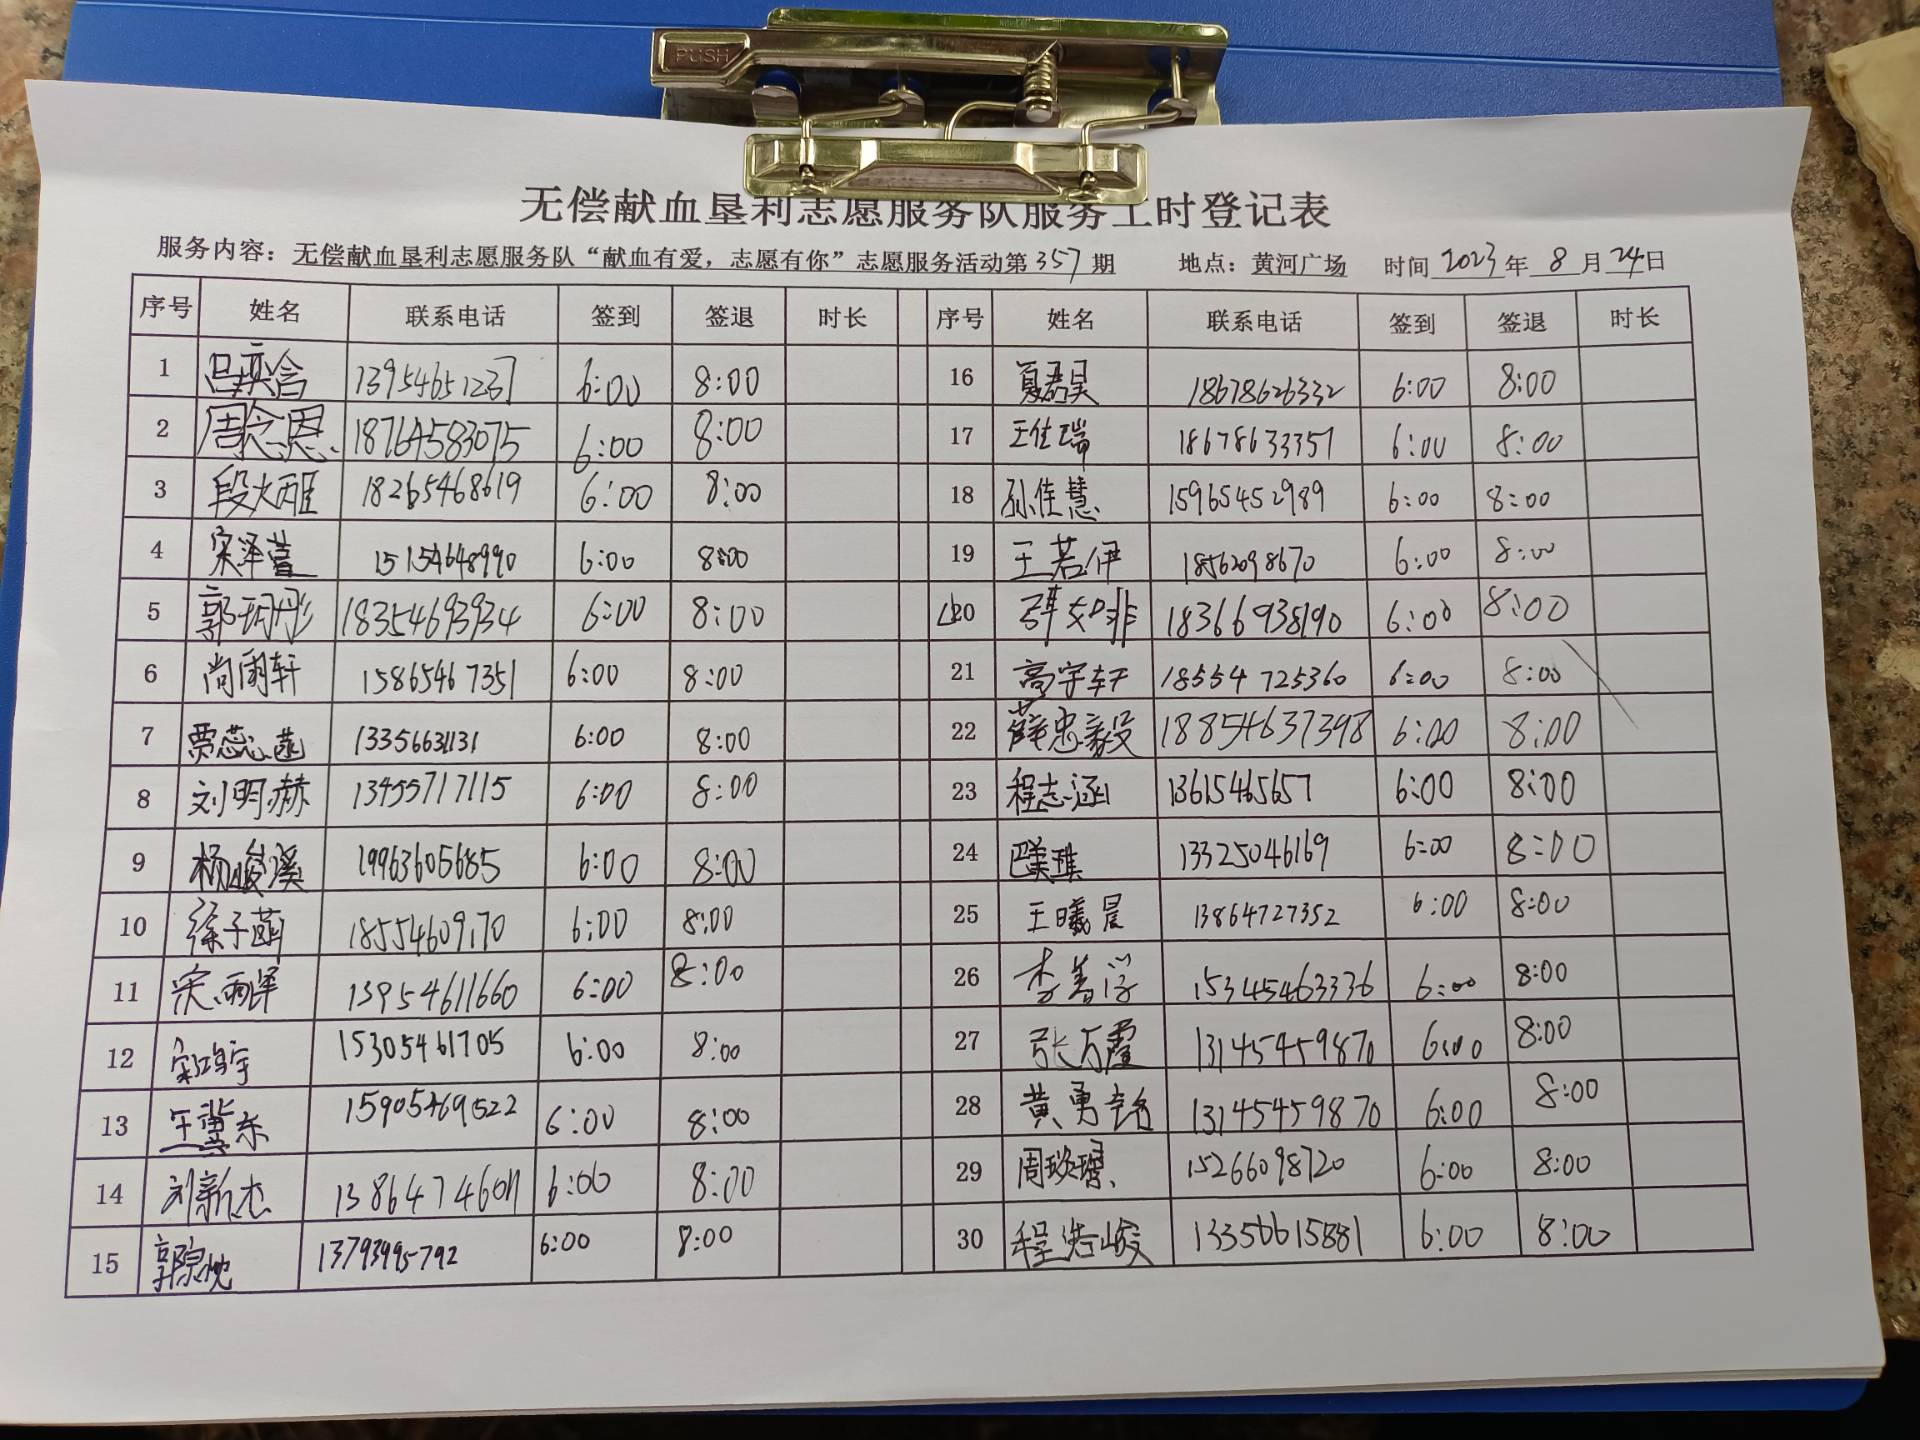 PUSH
无偿献血垦利志愿服务队服务工时登记表
服务内容：无偿献血垦利志愿服务队“献血有爱，志愿有你”志愿服务活动第357期 地点：黄河广场 时间2023年8月24日
序号 姓名 联系电话 签到 签退 时长 序号 姓名 联系电话 签到 签退 时长
1 吕奕含 13954651237 6:00 8:00 16 夏君昊 18678626332 6:00 8:00
2 周念恩 18764583075 6:00 8:00 17 王佳瑞 18678633357 6:00 8:00
3 18265468619 6:00 8:00 18 孙佳慧 15965452989 6:00 8:00
4 宋泽萱 15154648990 6:00 8:00 19 王若伊 18562098670 6:00 8:00
5 郭玥彤 18354693934 6:00 8:00 20 18366938190 6:00 8:00
6 尚闰轩 15865467351 6:00 8:00 21 高宇轩 18554725360 6:00 8:00
7 贾蕊菡 13356631131 6:00 8:00 22 薛忠毅 18854637398 6:00 8:00
8 刘明赫 13455717115 6:00 8:00 23 程志涵 13615465657 6:00 8:00
9 杨峻溪 19963605685 6:00 8:00 24 13325046169 6:00 8:00
10 徐子菡 18554609170 6:00 8:00 25 王曦晨 13864727352 6:00 8:00
11 宋雨泽 13954611660 6:00 8:00 26 15345463336 6:00 8:00
12 15305461705 6:00 8:00 27 张万霞 13145459870 6:00 8:00
13 15905469522 6:00 8:00 28 黄勇 13145459870 6:00 8:00
14 刘新杰 6:00 8:00 29 15266098720 6:00 8:00
15 13793995792 6:00 8:00 30 程浩峻 13356615881 6:00 8:00